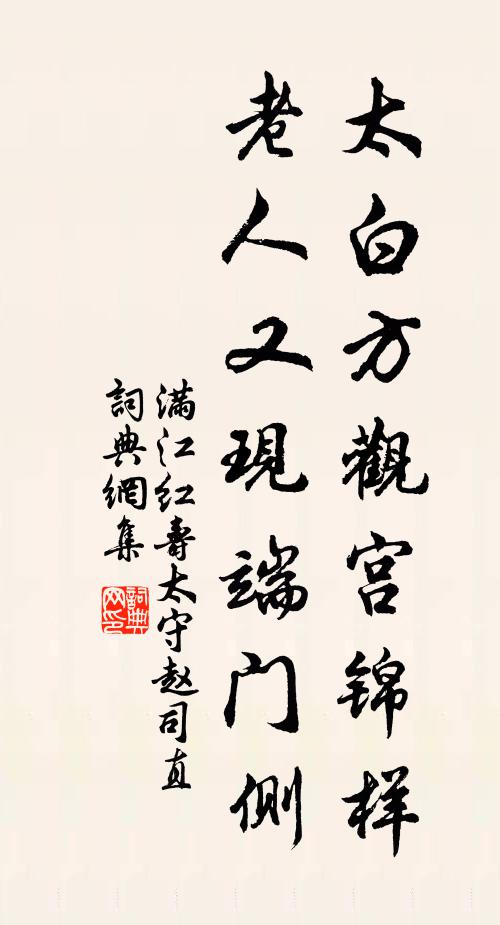 太白方觀宫锦样
老人又現端门側
滿江红壽太守赵司直
詞典網集
詞典网印